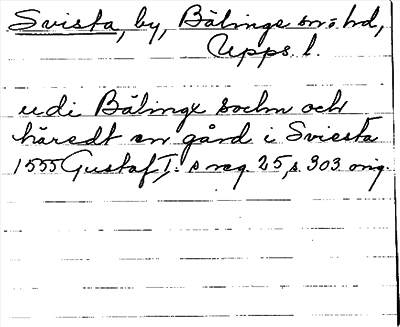 Svista, by, Bälinge sn o. hd,
Upps. l.
udi Bälinge sochn och
häredt en gård i Sviesta
1555 Gustaf I:s reg. 25, s. 303 orig.